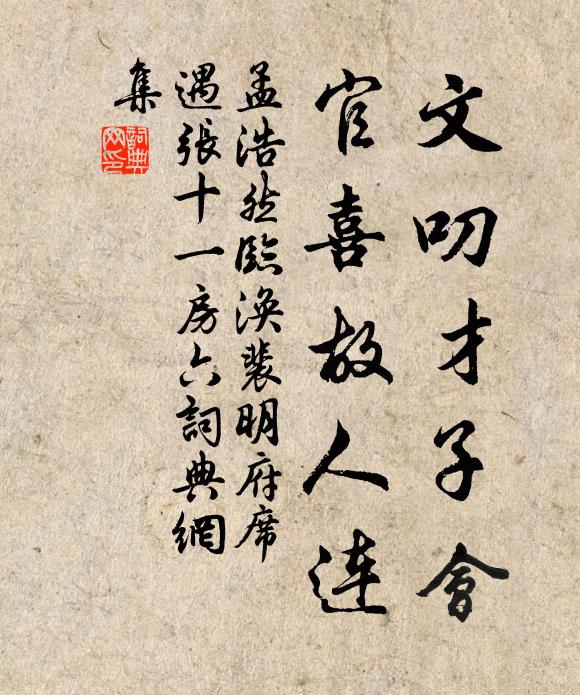 文叨才子會
官喜故人連
孟浩然臨渙裴明府席
遇張十一房六詞典網
集
詞典網印